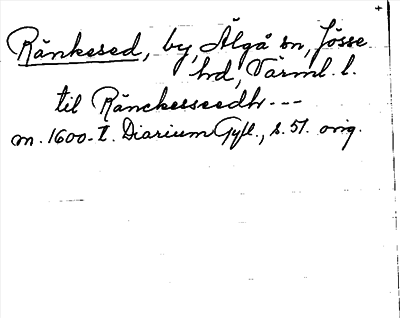 Ränkesed, by, Älgå sn, Jösse
hd, Värml. l.
til Ränckesseedh ---
m. 1600-t. Diarium Gyll., s. 51. orig.